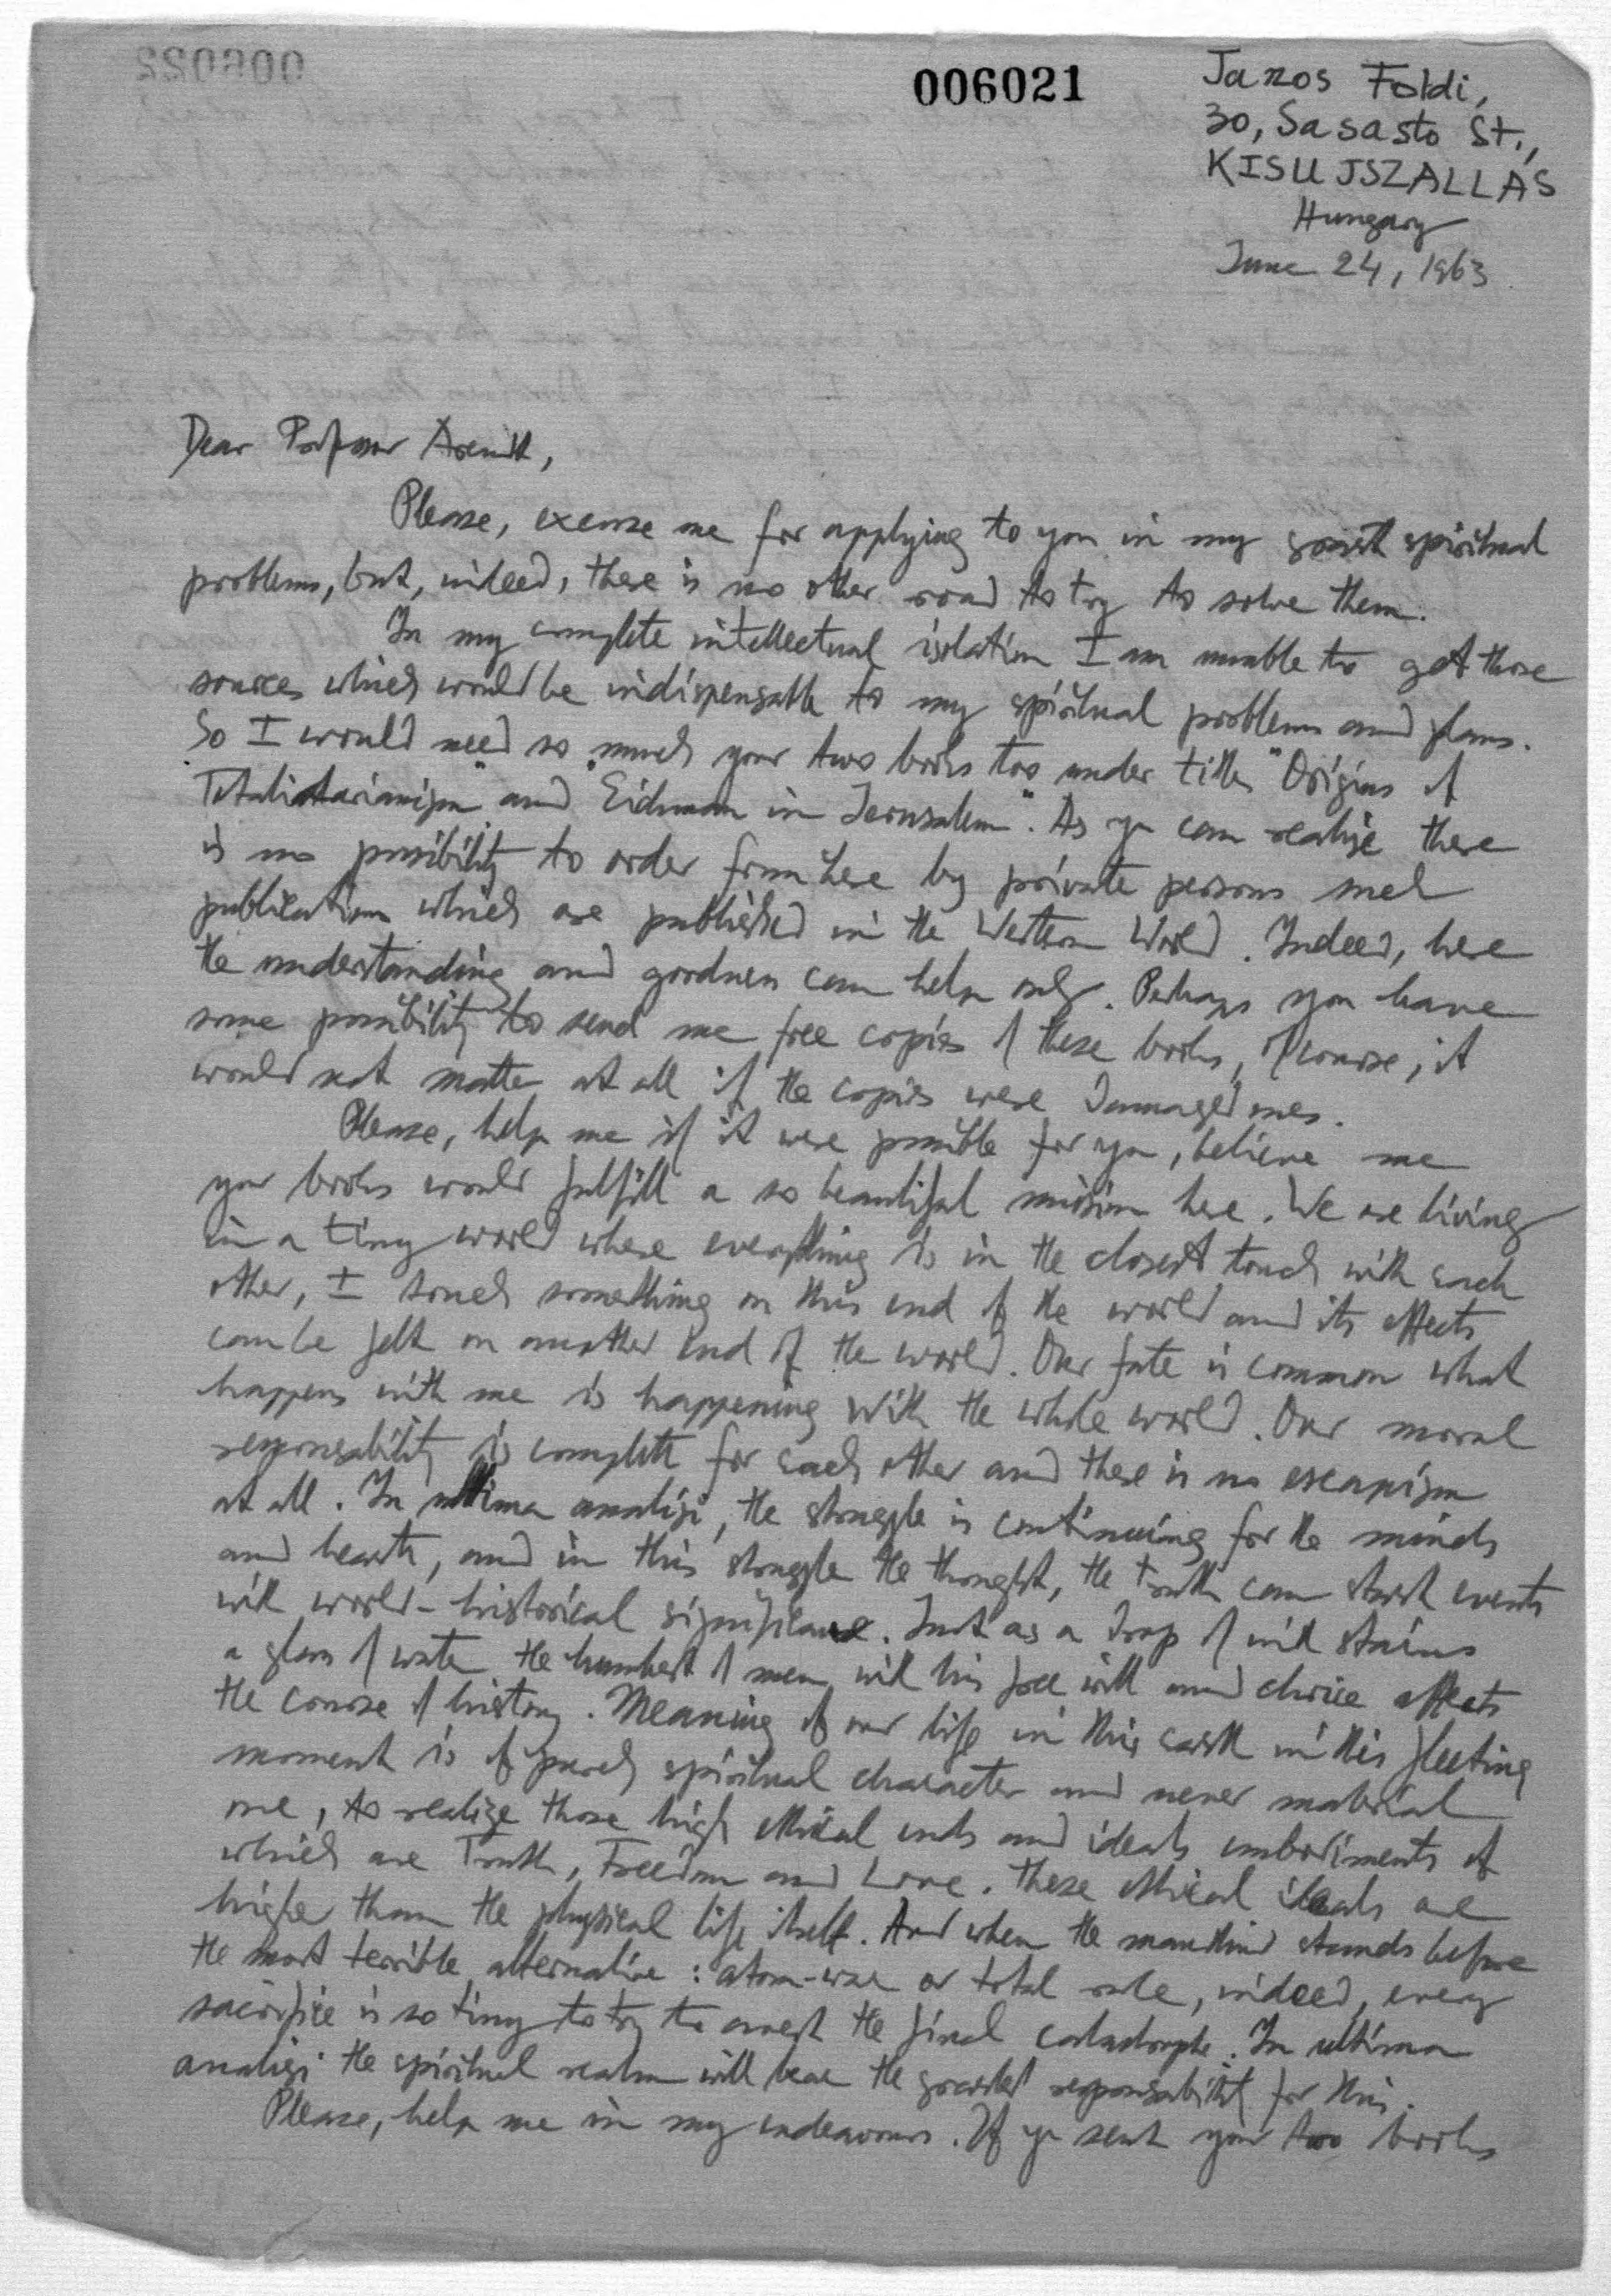 006021
Janos Foldi,
30, Sasasto St.,
KISUJSZALLAS
Hungary
June 24, 1963.
Dear Professor Arendt,
Please, excuse me for applying to you in my great spiritual
problems, but, indeed, there is no other road to try to solve them.
In my complete intellectual isolation I am unable to get those
sources which would be indispensable to my spiritual problems and plans.
So I would need so much your two books too under titles "Origins of
Totaliatarianism" and "Eichman in Jerusalem". As you can realize there
is no possibility to order from here by private persons such
publications which are published in the Western World. Indeed, here
the understanding and goodness can help only. Perhaps you have
some possibility to send me free copies of these books, of course, it
would not matter at all if the copies were damaged ones.
Please, help me if it were possible for you, believe me
your books would fulfill a so beautiful mission here. We are living
in a tiny world where everything is in the closest touch with each
other, I touch something on this end of the world and its effects
can be felt on another end of the world. Our fate is common what
happens with me is happening with the whole world. Our moral
responsability is complete for each other and there is no escapism
at all. In ultima analizi, the struggle is continuing for the minds
and hearts, and in this struggle the thought, the truth can start events
with world-historical significance. Just as a drop of ink stains
a glass of water the humbest of men with his free will and choice affects
the course of history. Meaning of our life in this earth in this fleeting
moment is of purely spiritual character and never material
one, to realize those high ethical ends and ideals embodiments of
which are Truth, Freedom and Love. These ethical ideals are
higher than the physical life itself. And when the mankind stands before
the most terrible alternative: atom-war or total rule, indeed, every
sacrifice is so tiny to try to arrest the final catastrophe. In ultima
analizi the spiritual realm will bear the greatest responsability for this.
Please, help me in my endeavours. If you sent your two books